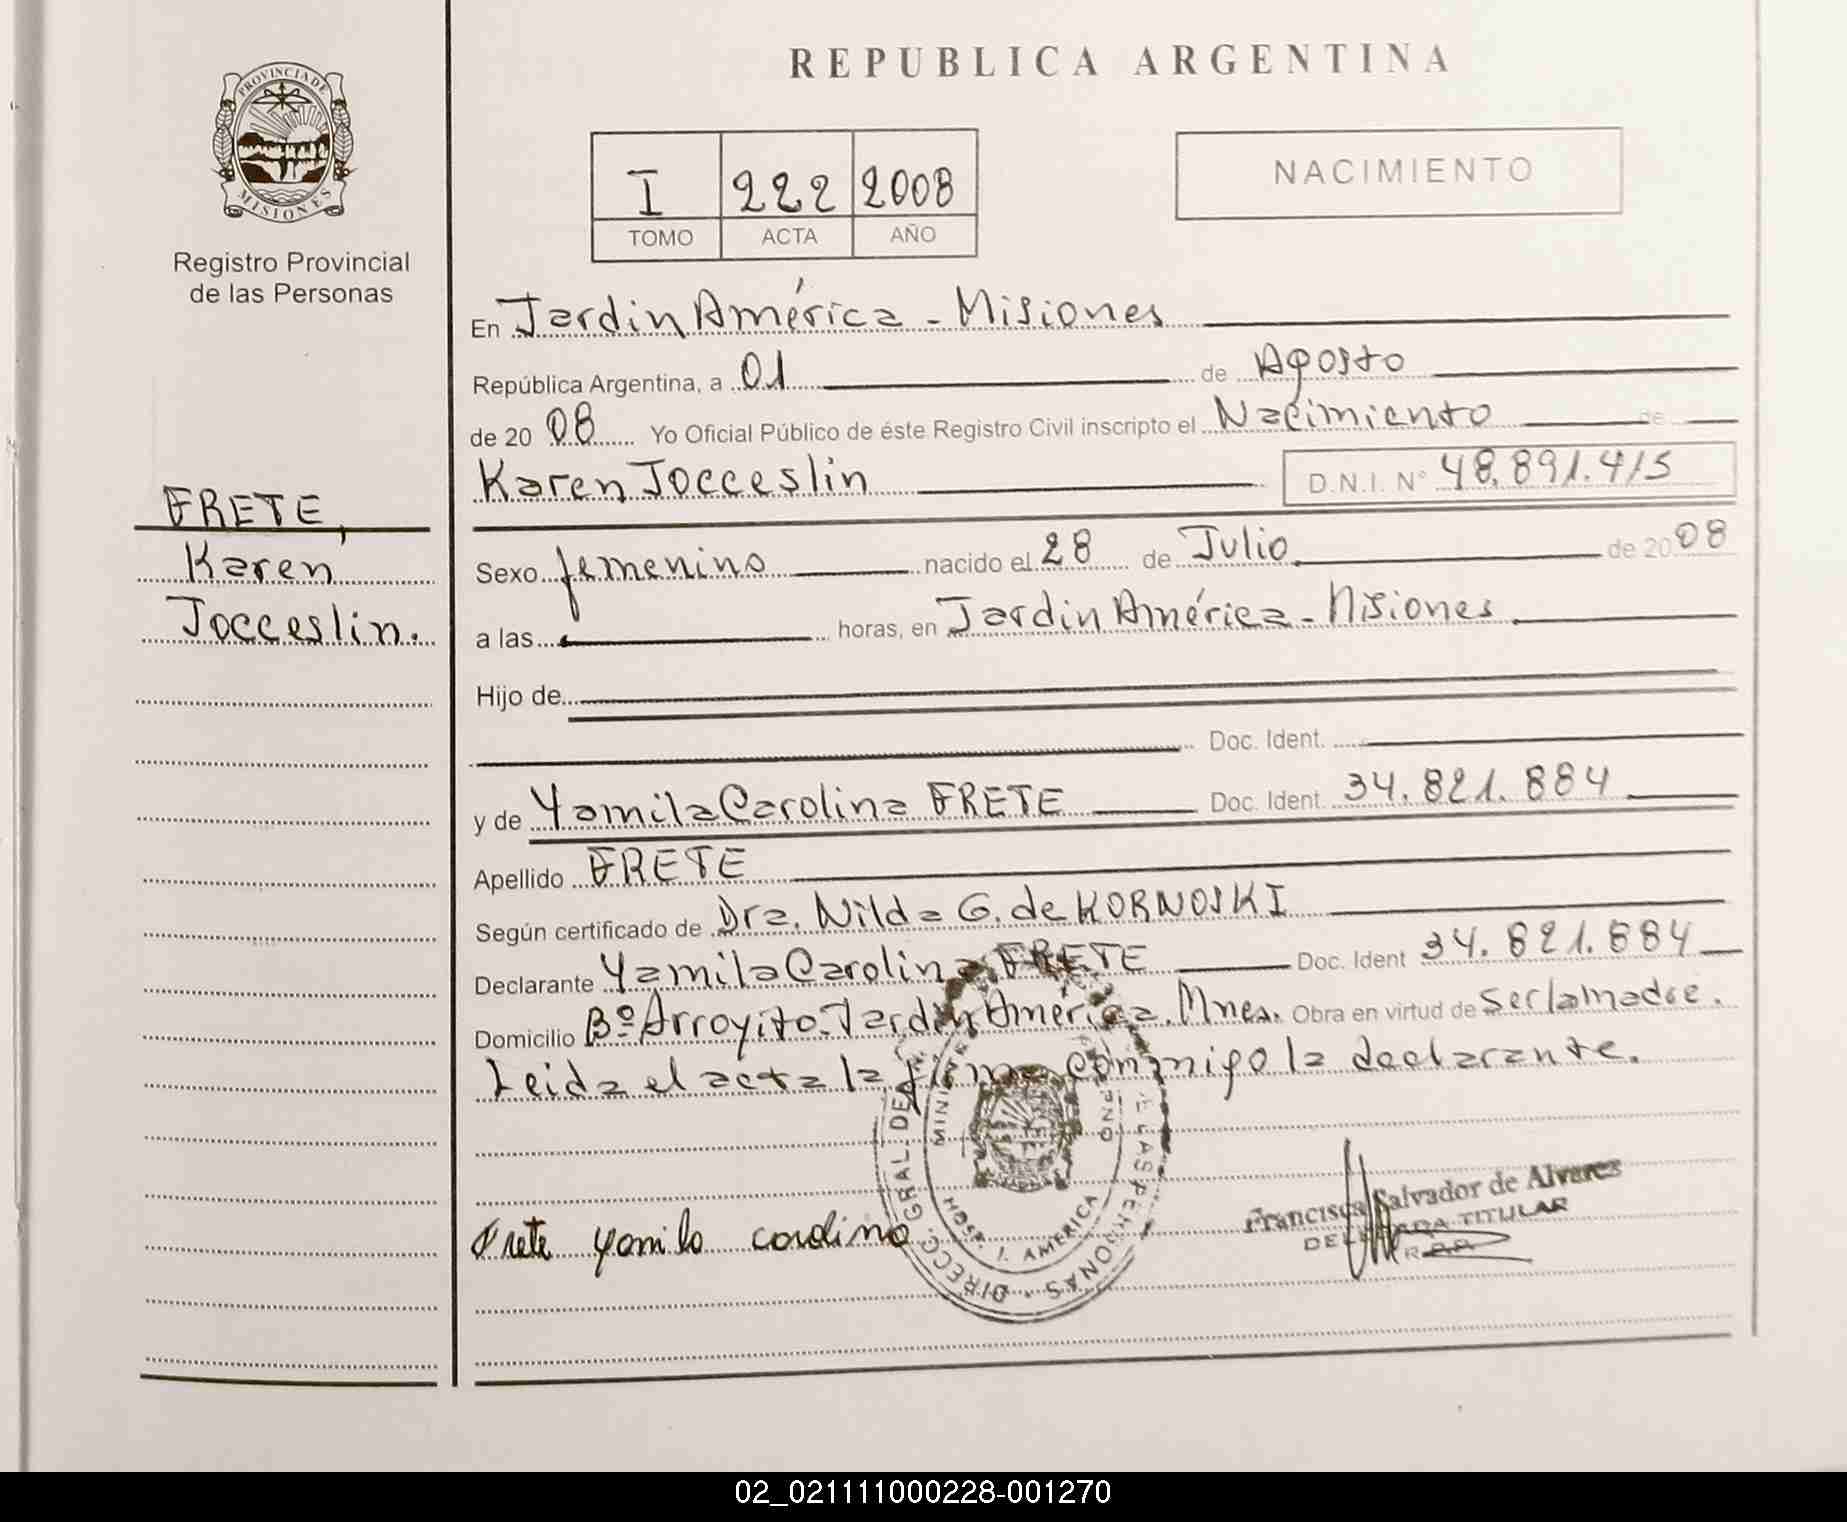 REPUBLICA ARGENTINA
PROVINCIA DE
MISIONES
Registro Provincial
de las Personas
I 222 2008
TOMO ACTA AÑO
NACIMIENTO
En Jardin América - Misiones
República Argentina, a 01 de Agosto
de 20 08 Yo Oficial Público de éste Registro Civil inscripto el Nacimiento de
Karen Jocceslin D.N.I. Nº 48.891.415
FRETE,
Karen
Jocceslin.
Sexo femenino nacido el 28 de Julio de 2008
a las horas, en Jardin América - Misiones
Hijo de
Doc. Ident.
y de Yamila Carolina FRETE Doc. Ident. 34.821.884
Apellido FRETE
Según certificado de Dra. Nilda G. de KORNOSKI
Declarante Yamila Carolina FRETE Doc. Ident 34.821.884
Domicilio Bº Arroyito. Jardin América. Mnes. Obra en virtud de ser la madre.
Leida el acta la firma conmigo la declarante.
Frete yamila carolina
DIRECC. GRAL. DE LAS PERSONAS
HOSP. J. AMERICA
Francisca Salvador de Alvares
DELEGADA TITULAR
02_021111000228-001270